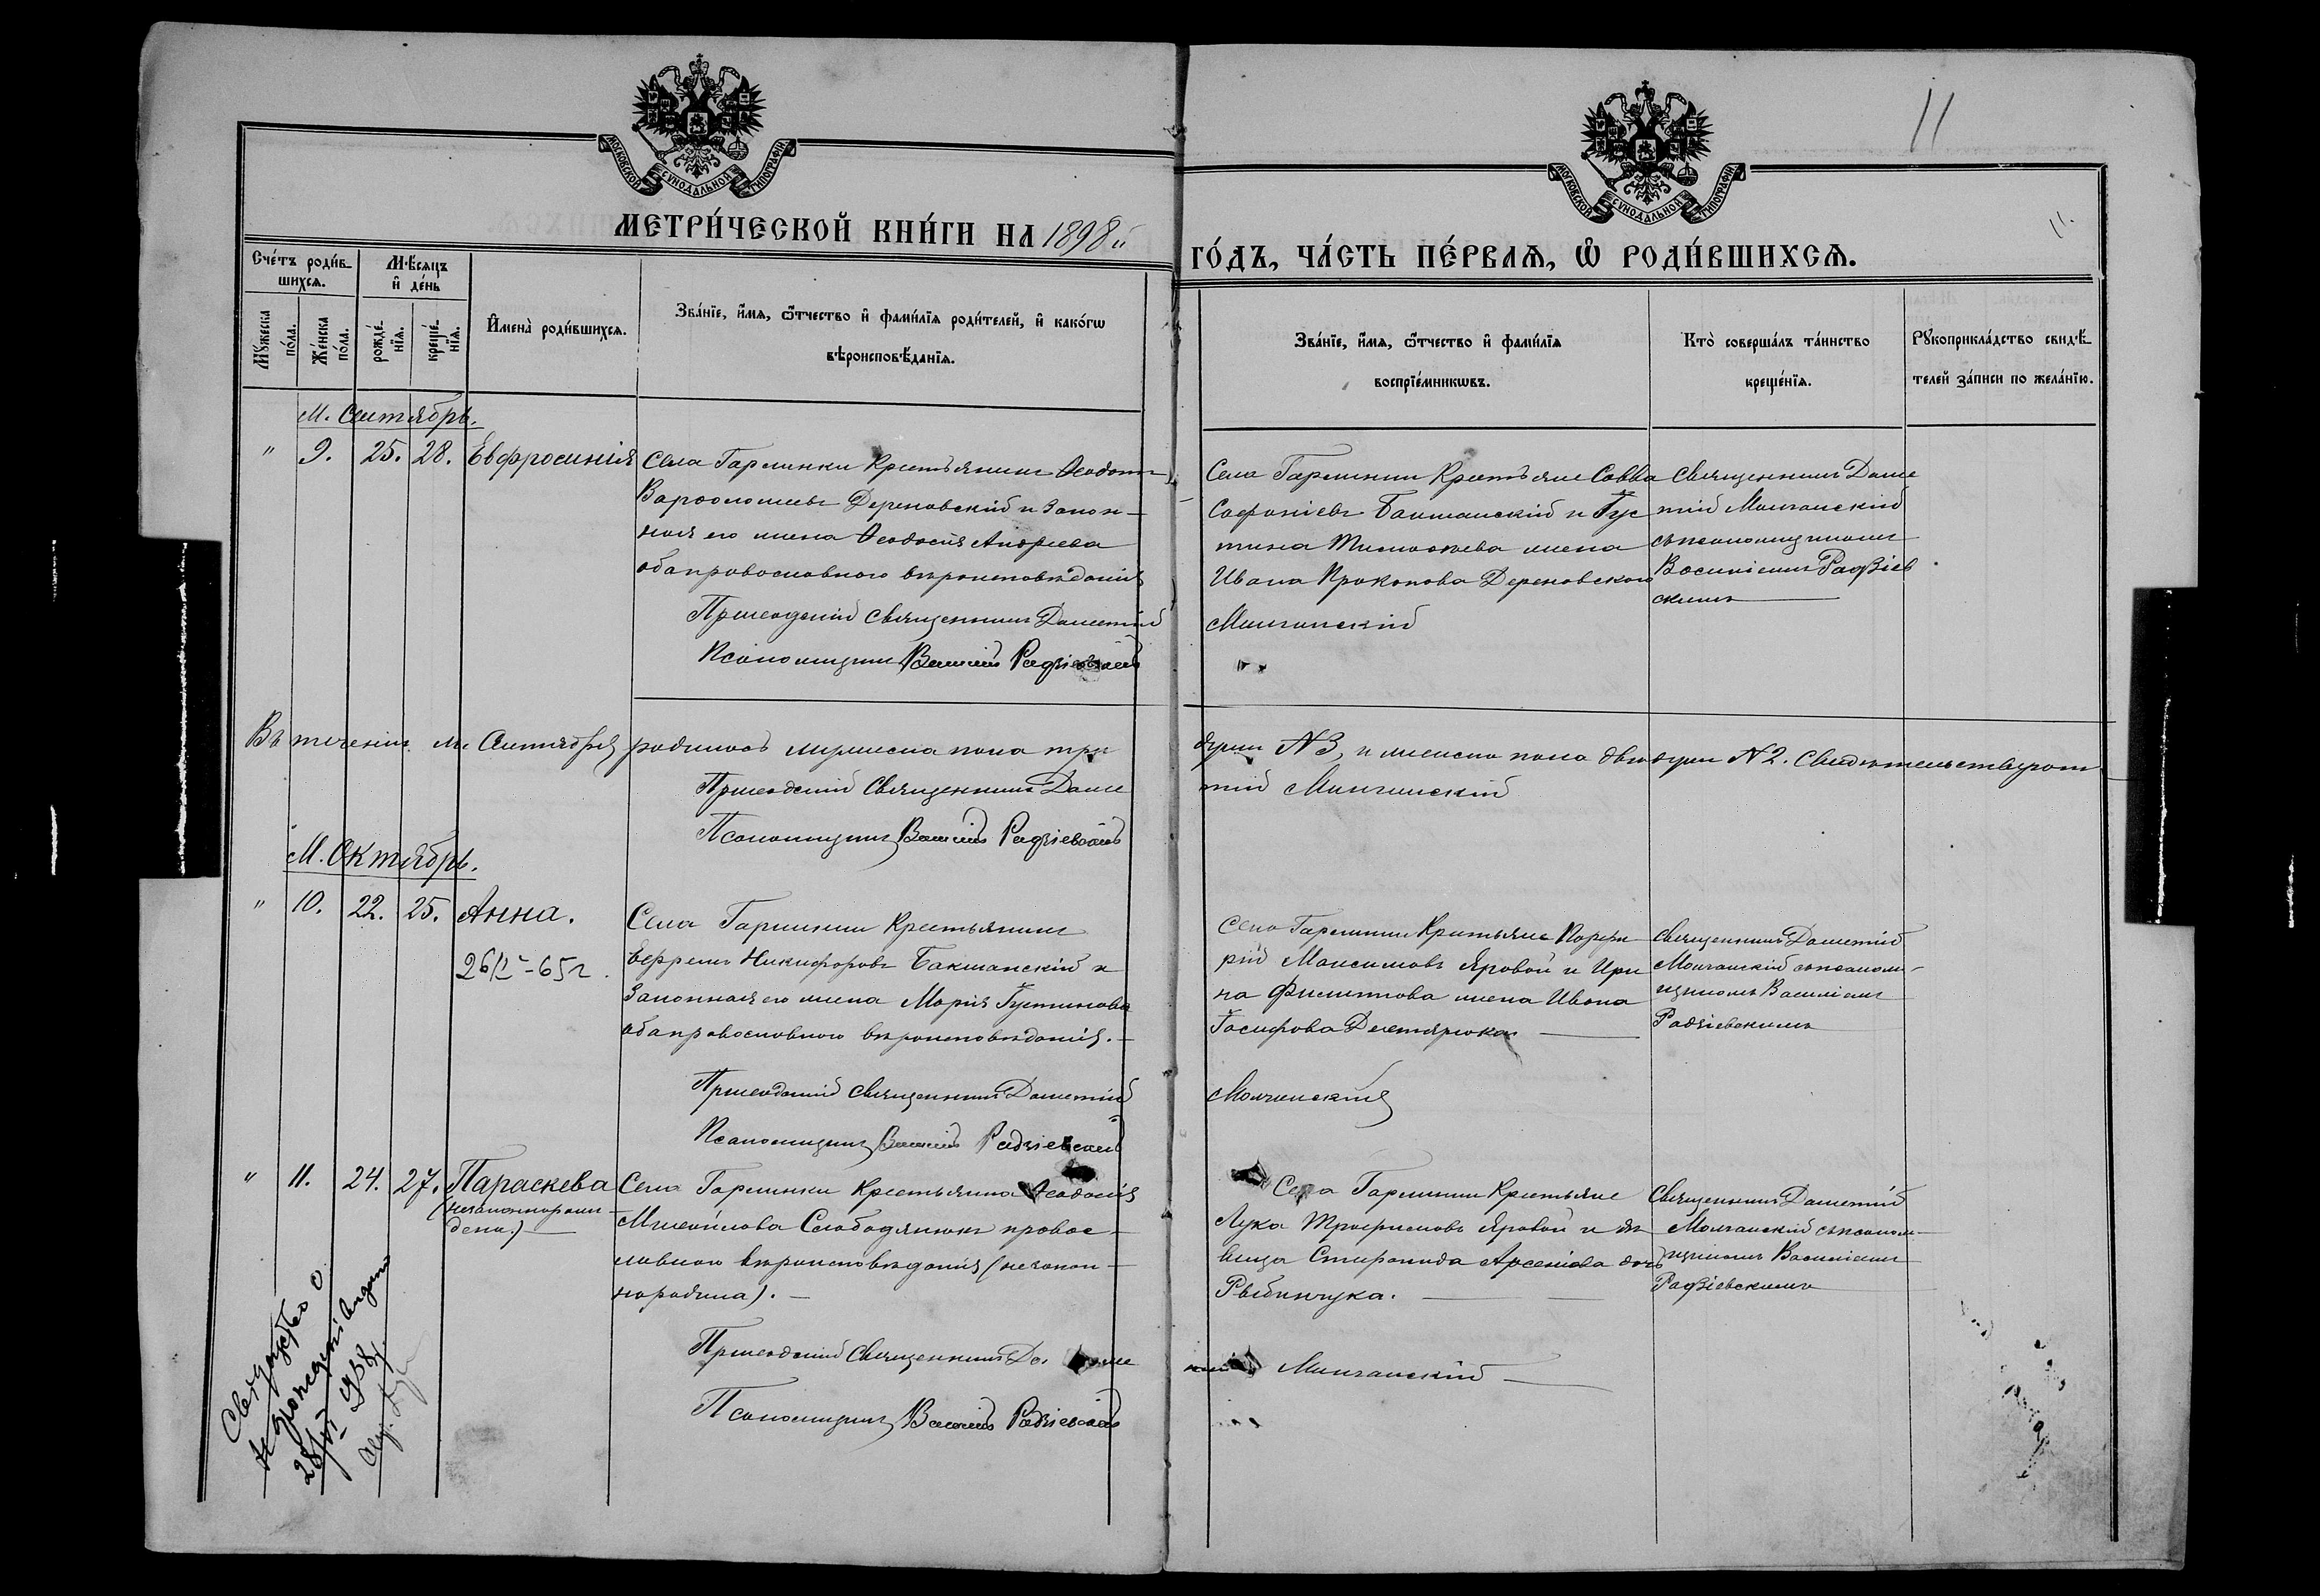 11
11.
МОСКОВСКОЙ СУНОДАЛЬНОЙ ТИПОГРАФІИ
МОСКОВСКОЙ СУНОДАЛЬНОЙ ТИПОГРАФІИ
МЕТРИ́ЧЕСКОЙ КНИ́ГИ НА 1898й
ГО́ДЪ, ЧА́СТЬ ПЕ́РВАѦ, Ѡ РОДИ́ВШИХСѦ.
Сче́тъ роди́вшихсѧ.
Мꙋ́жеска по́ла.
Же́нска по́ла.
Мѣ́сѧцъ и҆ де́нь
рожде́нїѧ.
креще́нїѧ.
И҆мена̀ роди́вшихсѧ.
Зва́нїе, и҆́мѧ, ѻ҆́тчество и҆ фами́лїѧ роди́телей, и҆ како́гѡ
вѣроисповѣ́данїѧ.
Зва́нїе, и҆́мѧ, ѻ҆́тчество и҆ фами́лїѧ
воспрїе́мникѡвъ.
Кто̀ соверша́лъ та́инство
креще́нїѧ.
Рꙋкоприкла́дство свидѣ́телей за́писи по жела́нїю.
М. Сентябрь.
" 9. 25. 28. Евфросинія
Села Гарминки Крестьянинъ Ѳеодотъ
Варѳоломеевъ Дереновскій и закон-
ная его жена Ѳеодосія Андреева
оба православного вѣроисповѣданія
Приходскій Священникъ Дометій
Псаломщикъ Василій Радзіевскій
Села Гарминки Крестьяне Савва
Софоніевъ Бакшанскій и Іус
тина Тимоѳеева жена
Ивана Прокопова Дереновского
Молчанскій
Священникъ Доме
тій Молчанскій
съ псаломщикомъ
Василіемъ Радзіев
скимъ
Въ теченіи м. Сентября родилось мужеска пола три
душ № 3, и женска пола двѣ душ № 2. Свидѣтельствуютъ
Приходскій Священникъ Доме
тій Молчанскій
Псаломщикъ Василій Радзіевскій
М. Октябрь.
" 10. 22. 25. Анна.
-65 г.
Села Гарминки Крестьянинъ
Ефремъ Никифоровъ Бакшанскій и
законная его жена Марія Іустинова
оба православного вѣроисповѣданія.
Приходскій Священникъ Дометій
Псаломщикъ Василій Радзіевскій
Села Гарминки Крестьяне Порфи
рій Максимовъ Яровой и Ири
на Филиппова жена Ивана
Іосифова Дегтярюка
Молчанскій
Священникъ Дометій
Молчанскій съ псалом-
щикомъ Василіемъ
Радзіевскимъ
" 11. 24. 27. Параскева
(незаконнорож
дена.)
Села Гарминки Крестьянка Ѳеодосія
Михайлова Слободянюкъ право-
славного вѣроисповѣданія (незакон-
норождена).
Приходскій Священникъ До ме
тій Молчанскій
Псаломщикъ Василій Радзіевскій
Села Гарминки Крестьяне
Лука Трофимовъ Яровой и дѣ
вица Стефанида Арсеніева дочь
Рыбинчука.
Священникъ Дометій
Молчанскій съ псалом-
щикомъ Василіемъ
Радзіевскимъ
Свидоцтво о
народженні видано
28/VI 1938